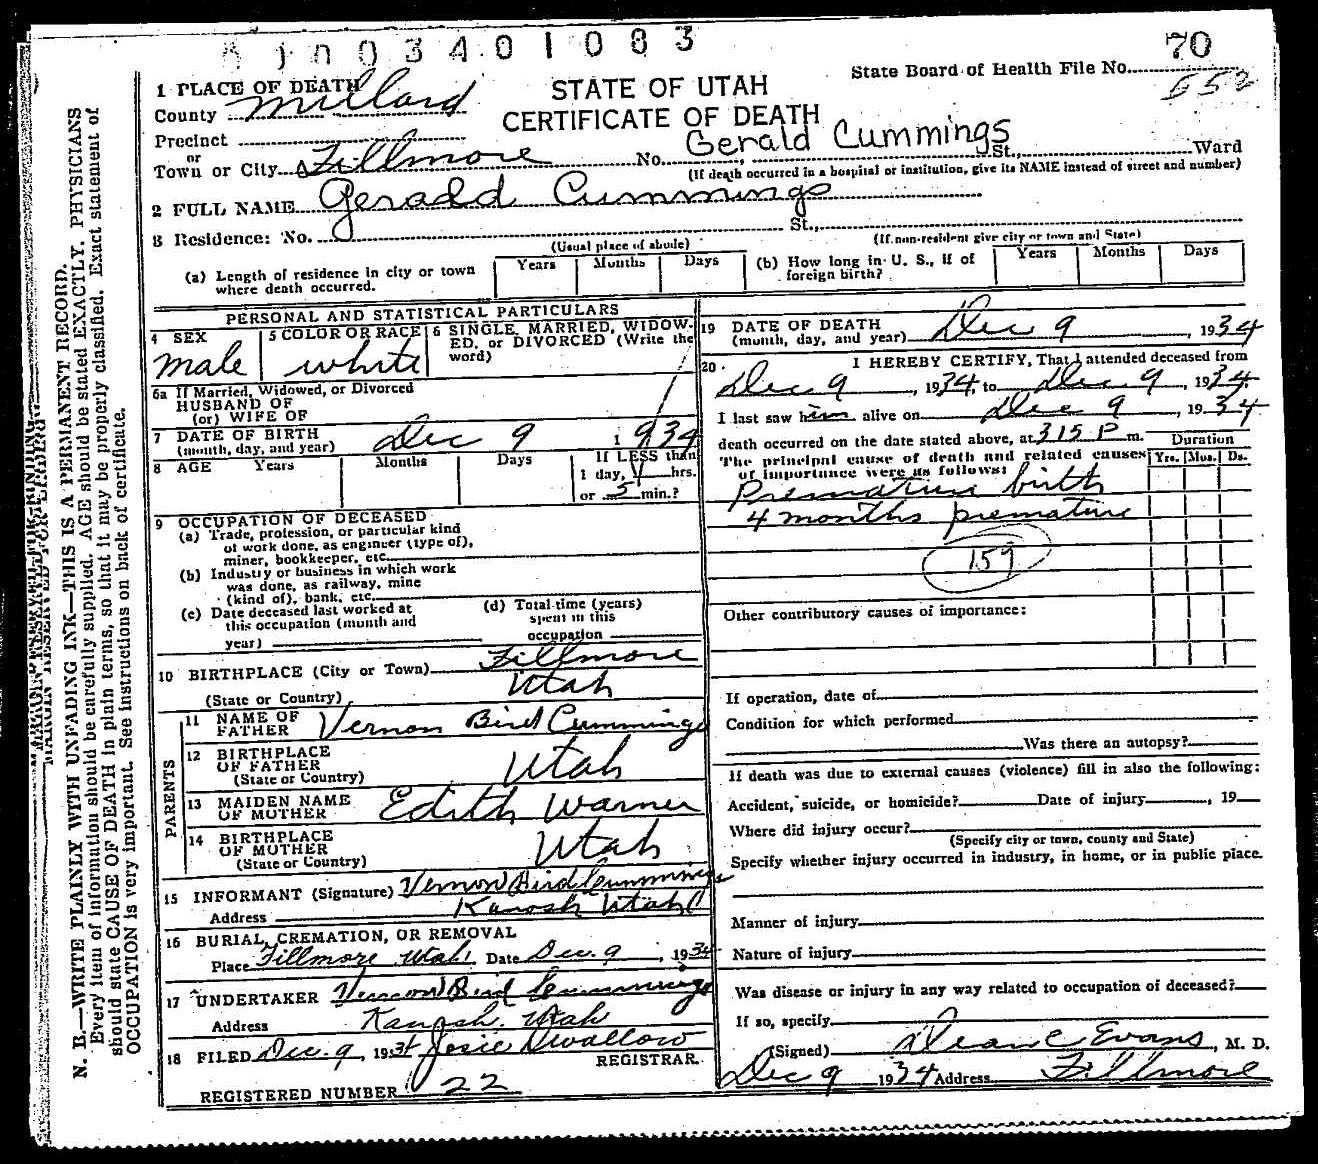 003401083
70
State Board of Health File No.
552
1 PLACE OF DEATH
STATE OF UTAH
County Millard
CERTIFICATE OF DEATH
Precinct
Gerald Cummings
or
Town or City Fillmore No. St., Ward
(If death occurred in a hospital or institution, give its NAME instead of street and number)
2 FULL NAME Gerald Cummings
3 Residence: No. St.,
(Usual place of abode) (If non-resident give city or town and State)
(a) Length of residence in city or town where death occurred. Years Months Days
(b) How long in U. S., if of foreign birth? Years Months Days
PERSONAL AND STATISTICAL PARTICULARS
4 SEX
male
5 COLOR OR RACE
white
6 SINGLE, MARRIED, WIDOW-
ED, or DIVORCED (Write the
word)
6a If Married, Widowed, or Divorced
HUSBAND OF
(or) WIFE OF
7 DATE OF BIRTH
(month, day, and year) Dec 9 1934
8 AGE Years Months Days If LESS than
1 day, hrs.
or 5 min.?
9 OCCUPATION OF DECEASED
(a) Trade, profession, or particular kind
of work done, as engineer (type of),
miner, bookkeeper, etc.
(b) Industry or business in which work
was done, as railway, mine
(kind of), bank, etc.
(c) Date deceased last worked at
this occupation (month and
year)
(d) Total time (years)
spent in this
occupation
10 BIRTHPLACE (City or Town) Fillmore
(State or Country) Utah
PARENTS
11 NAME OF
FATHER Vernon Bird Cummings
12 BIRTHPLACE
OF FATHER
(State or Country) Utah
13 MAIDEN NAME
OF MOTHER Edith Warner
14 BIRTHPLACE
OF MOTHER
(State or Country) Utah
15 INFORMANT (Signature) Vernon Bird Cummings
Address Kanosh Utah
16 BURIAL, CREMATION, OR REMOVAL
Place Fillmore Utah Date Dec. 9, 1934
17 UNDERTAKER Vernon Bird Cummings
Address Kanosh, Utah
18 FILED Dec. 9, 1934 Josie Swallow
REGISTRAR.
REGISTERED NUMBER 22
19 DATE OF DEATH
(month, day, and year) Dec 9, 1934
20 I HEREBY CERTIFY, That I attended deceased from
Dec 9, 1934, to Dec 9, 1934
I last saw him alive on Dec 9, 1934
death occurred on the date stated above, at 315 P m.
The principal cause of death and related causes
of importance were as follows:
Duration
Yrs. Mos. Ds.
Premature birth
4 months premature
159
Other contributory causes of importance:
If operation, date of
Condition for which performed
Was there an autopsy?
If death was due to external causes (violence) fill in also the following:
Accident, suicide, or homicide? Date of injury , 19
Where did injury occur?
(Specify city or town, county and State)
Specify whether injury occurred in industry, in home, or in public place.
Manner of injury
Nature of injury
Was disease or injury in any way related to occupation of deceased?
If so, specify
(Signed) Dean C Evans, M. D.
Dec 9 1934 Address Fillmore
MARGIN RESERVED FOR BINDING
N. B.—WRITE PLAINLY WITH UNFADING INK—THIS IS A PERMANENT RECORD.
Every item of information should be carefully supplied. AGE should be stated EXACTLY. PHYSICIANS
should state CAUSE OF DEATH in plain terms, so that it may be properly classified. Exact statement of
OCCUPATION is very important. See instructions on back of certificate.